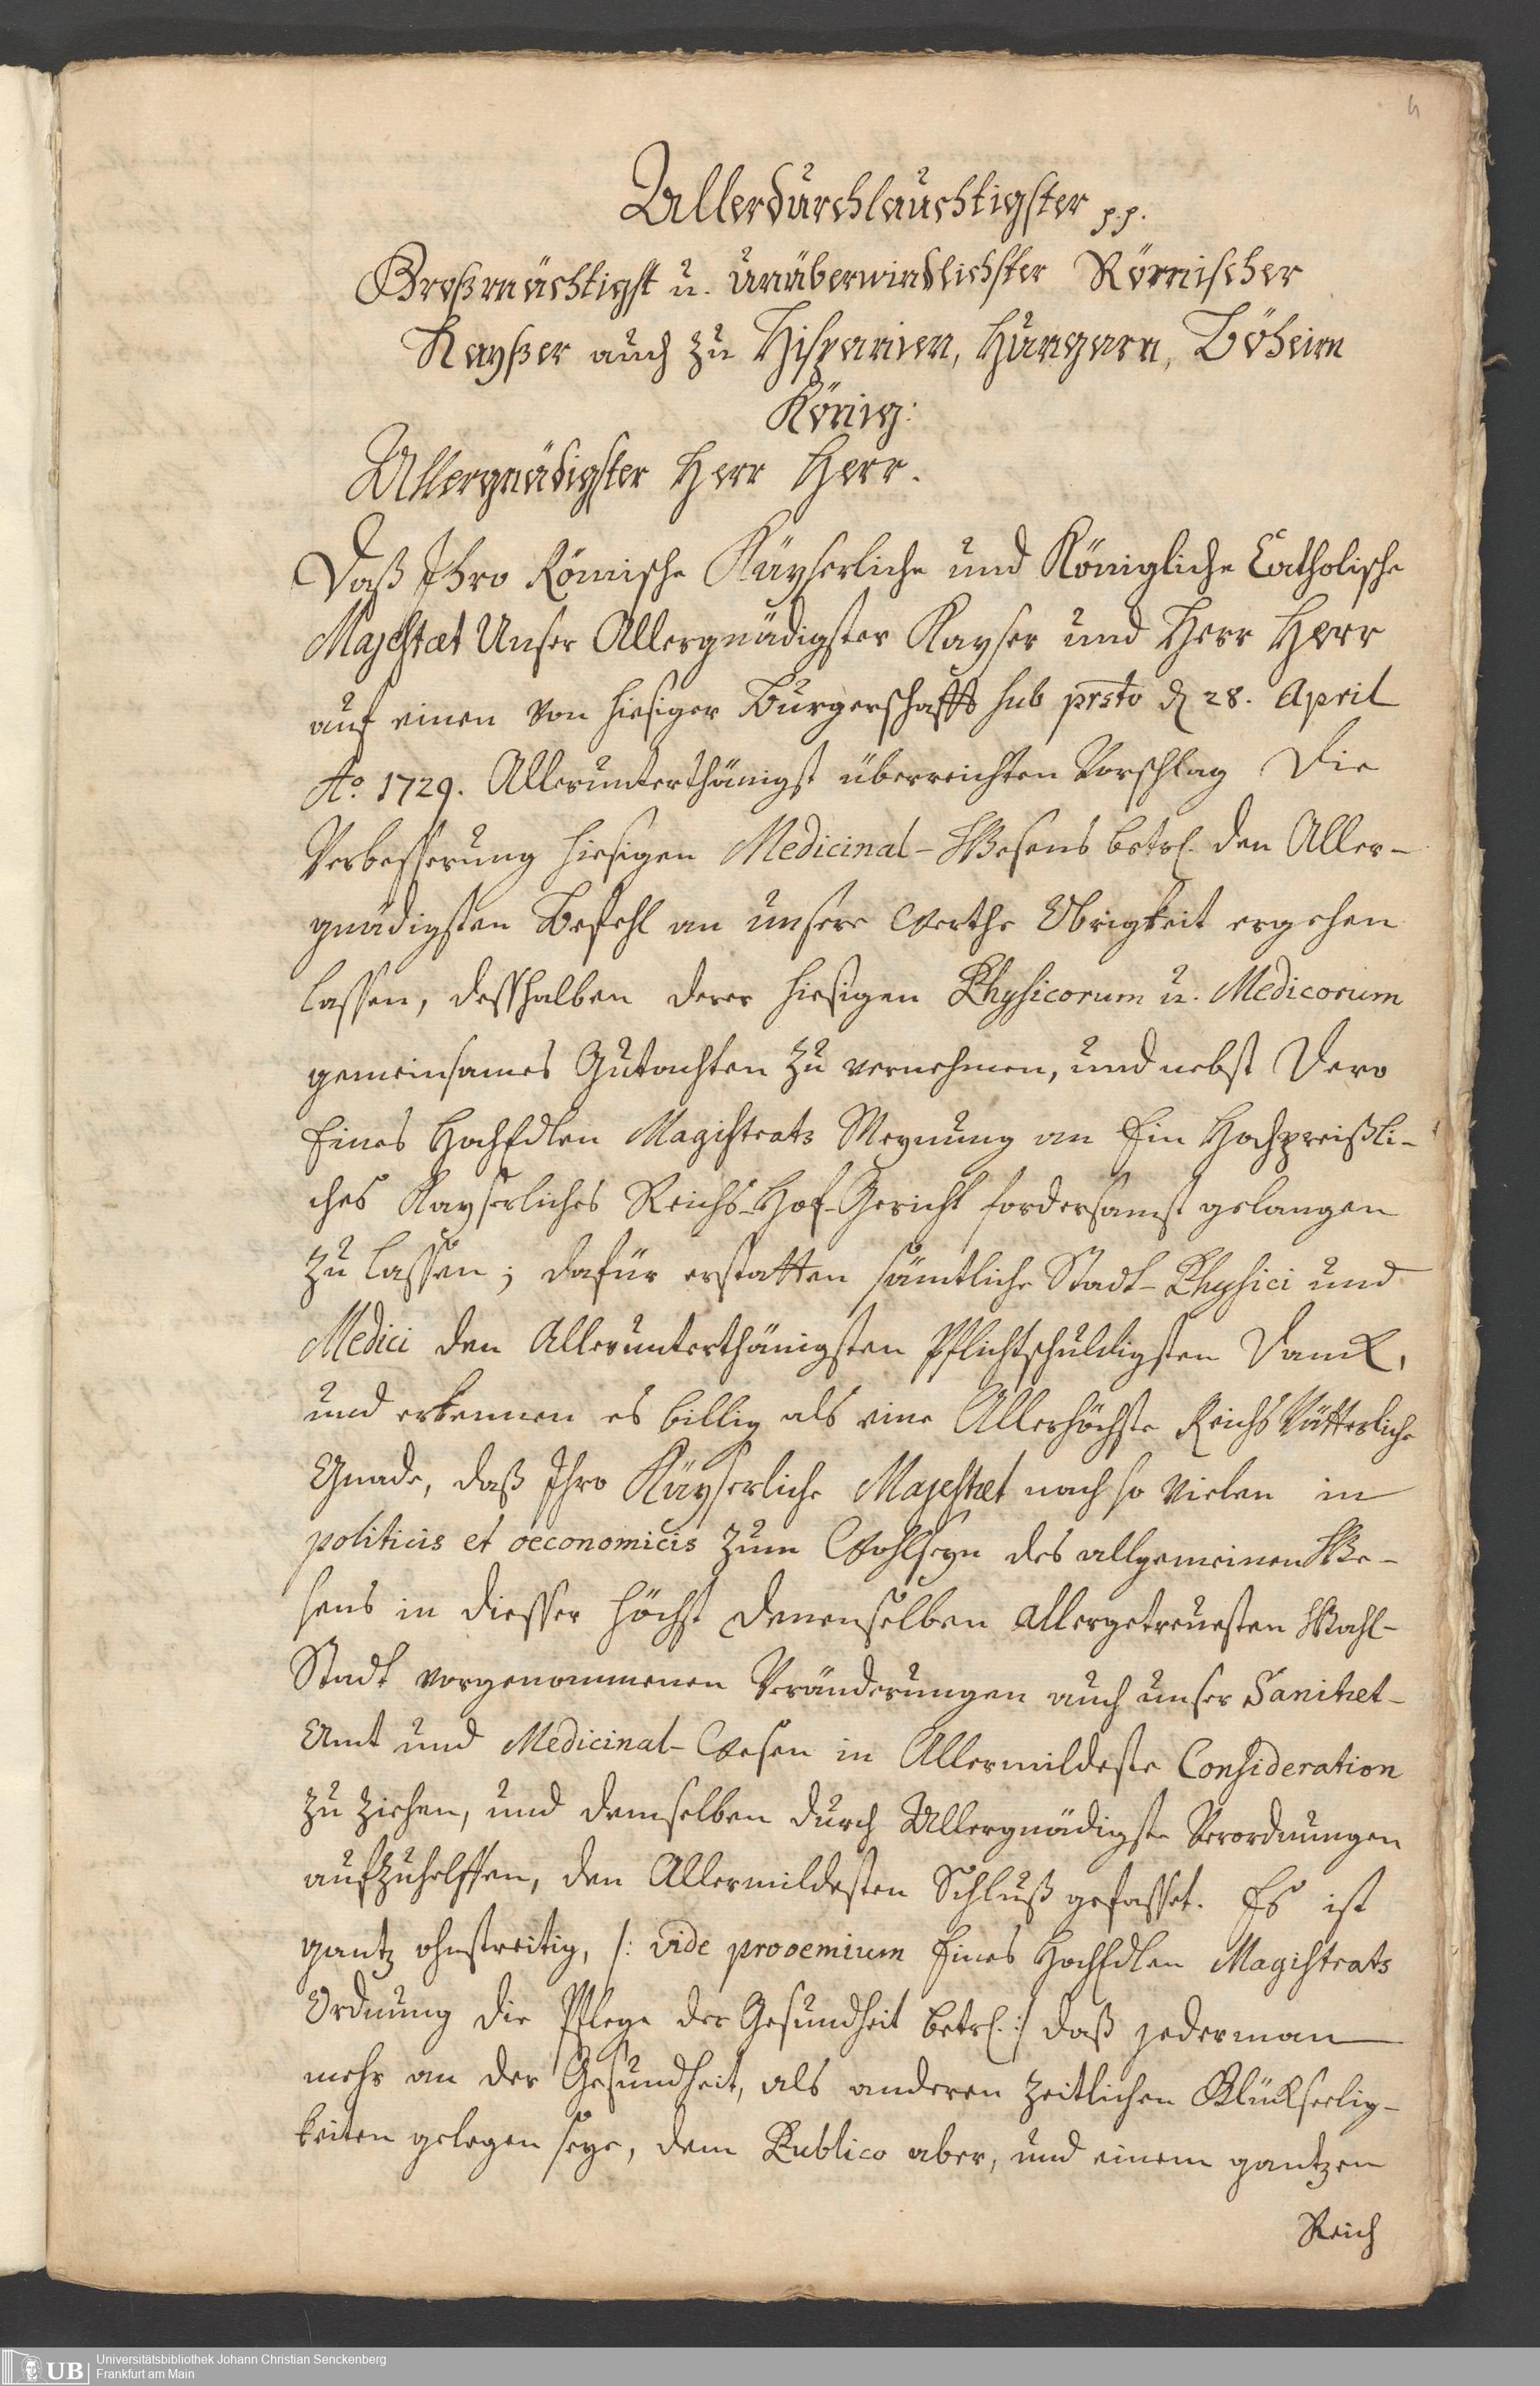 4
Allerdurchlauchtigster p.p.
Großmächtigst u. unüberwindlichster Römischer
Kayßer auch zu Hispanien, Hungarn, Böheim
König:
Allergnädigster Herr Herr.
Daß Ihro Römische Käyserliche und Königliche Catholische
Majestæt Unser Allergnädigster Kayser und Herr Herr
auf einen von hiesiger Burgerschafft sub prsto d 28. April
Ao. 1729. Allerunterthänigst überreichten Vorschlag die
Verbesserung hiesigen Medicinal-Wesens betrl. den Aller-
gnädigsten Befehl an unsere Werthe Obrigkeit ergehen
lassen, desshalben derer hiesigen Physicorum u. Medicorum
gemeinsames Gutachten zu vernehmen, und nebst Dero
Eines HochEdlen Magistrats Meynung an Ein Hochpreißli-
ches Kayserliches Reichs-Hof-Gericht fordersamst gelangen
zu lassen; dafür erstatten sämtliche Stadt-Physici und
Medici den Allerunterthänigsten Pflichtschuldigsten Danck,
und erkennen es billig als eine Allerhöchste Reichs Vätterliche
Gnade, daß Ihro Käyserliche Majestæt nach so vielen in
politicis et oeconomicis zum Wohlseyn des allgemeinen We-
sens in diesser höchst denenselben allergetreuesten Wahl-
Stadt vorgenommenen Veränderungen auch unser Sanitæt-
Amt und Medicinal-Wesen in Allermildeste Consideration
zu ziehen, und demselben durch Allergnädigste Verordnungen
aufzuhelffen, den Allermildesten Schluß gefasset. Es ist
gantz ohnstreitig, /: vide prooemium Eines HochEdlen Magistrats
Ordnung die Pflege der Gesundheit betrl. :/ daß jederman
mehr an der Gesundheit, als anderen zeitlichen Glückseelig-
keiten gelegen seye, dem Publico aber, und einem gantzen
Reich
UB
Universitätsbibliothek Johann Christian Senckenberg
Frankfurt am Main